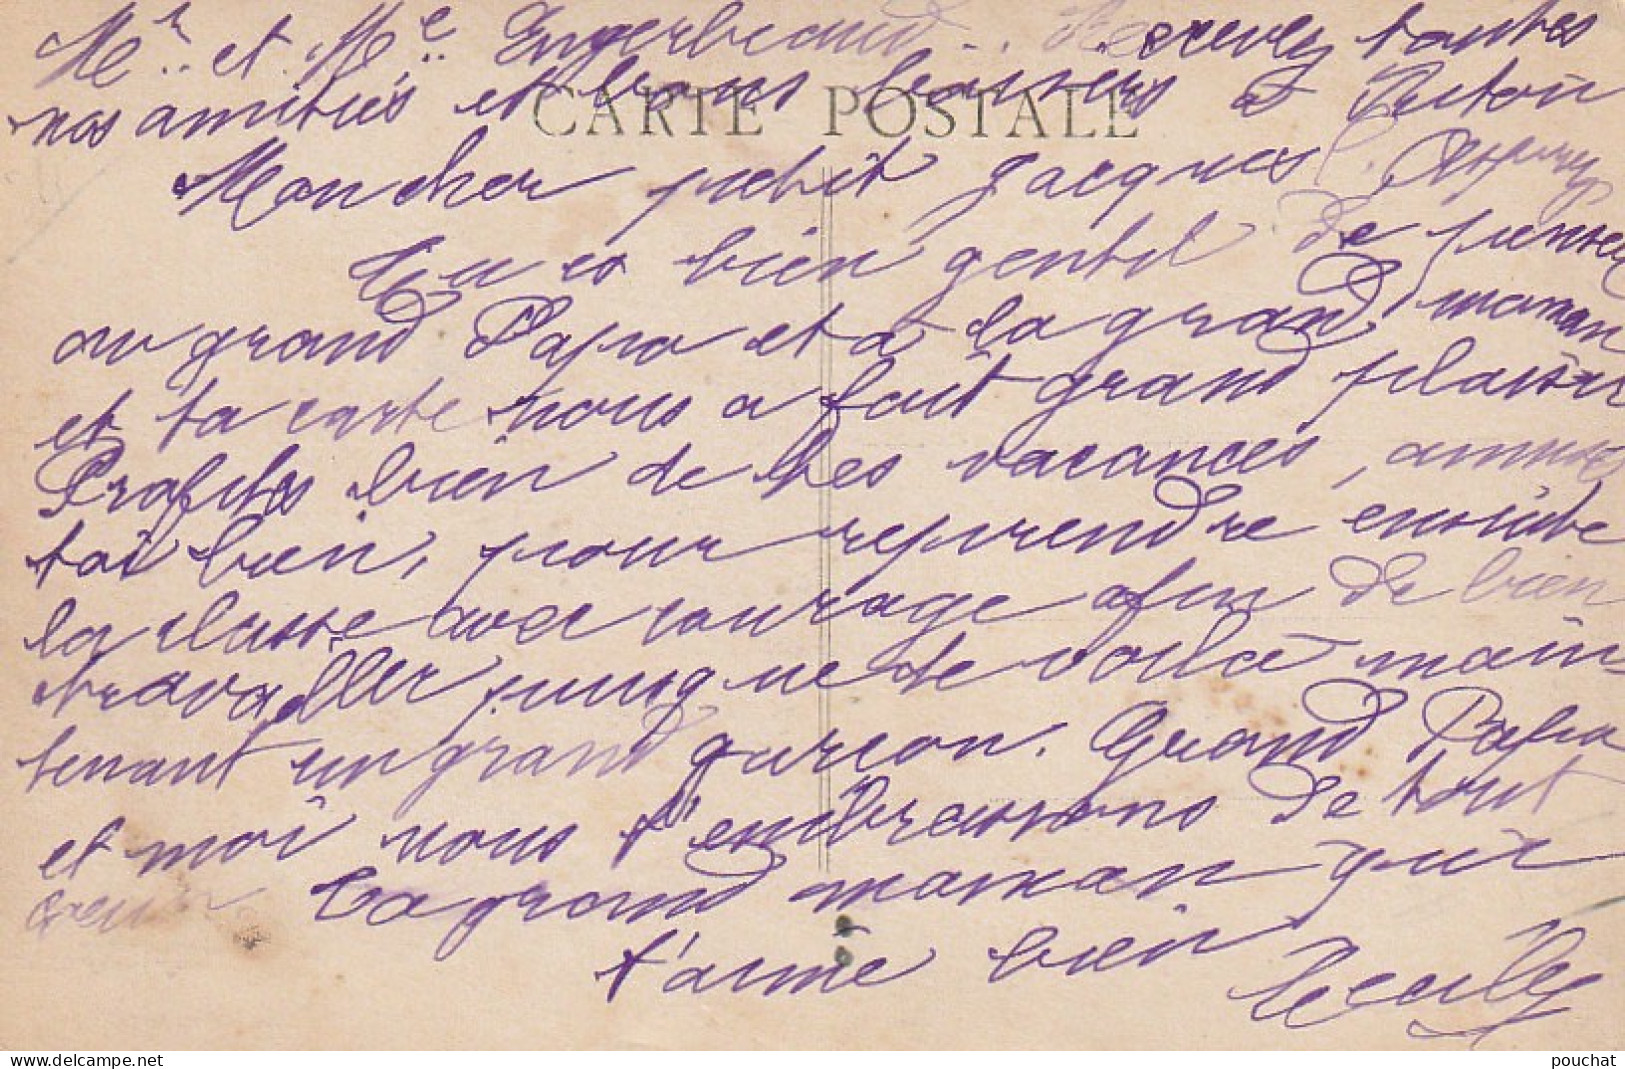 Mr. et Me. Engerbeaud.. Recevez toutes
nos amitiés et bons baisers à
CARTE POSTALE
Mon cher petit Jacques
Tu es bien gentil de penser
au grand Papa et à la grand' maman
et ta carte nous a fait grand plaisir
Profites bien de tes vacances, amuses
toi bien, pour reprendre ensuite
la classe avec courage afin de bien
travailler puisque te voilà main
tenant un grand garcon. Grand Papa
et moi nous t'embrassons de tout
coeur Ta grand maman qui
t'aime bien
pouchat